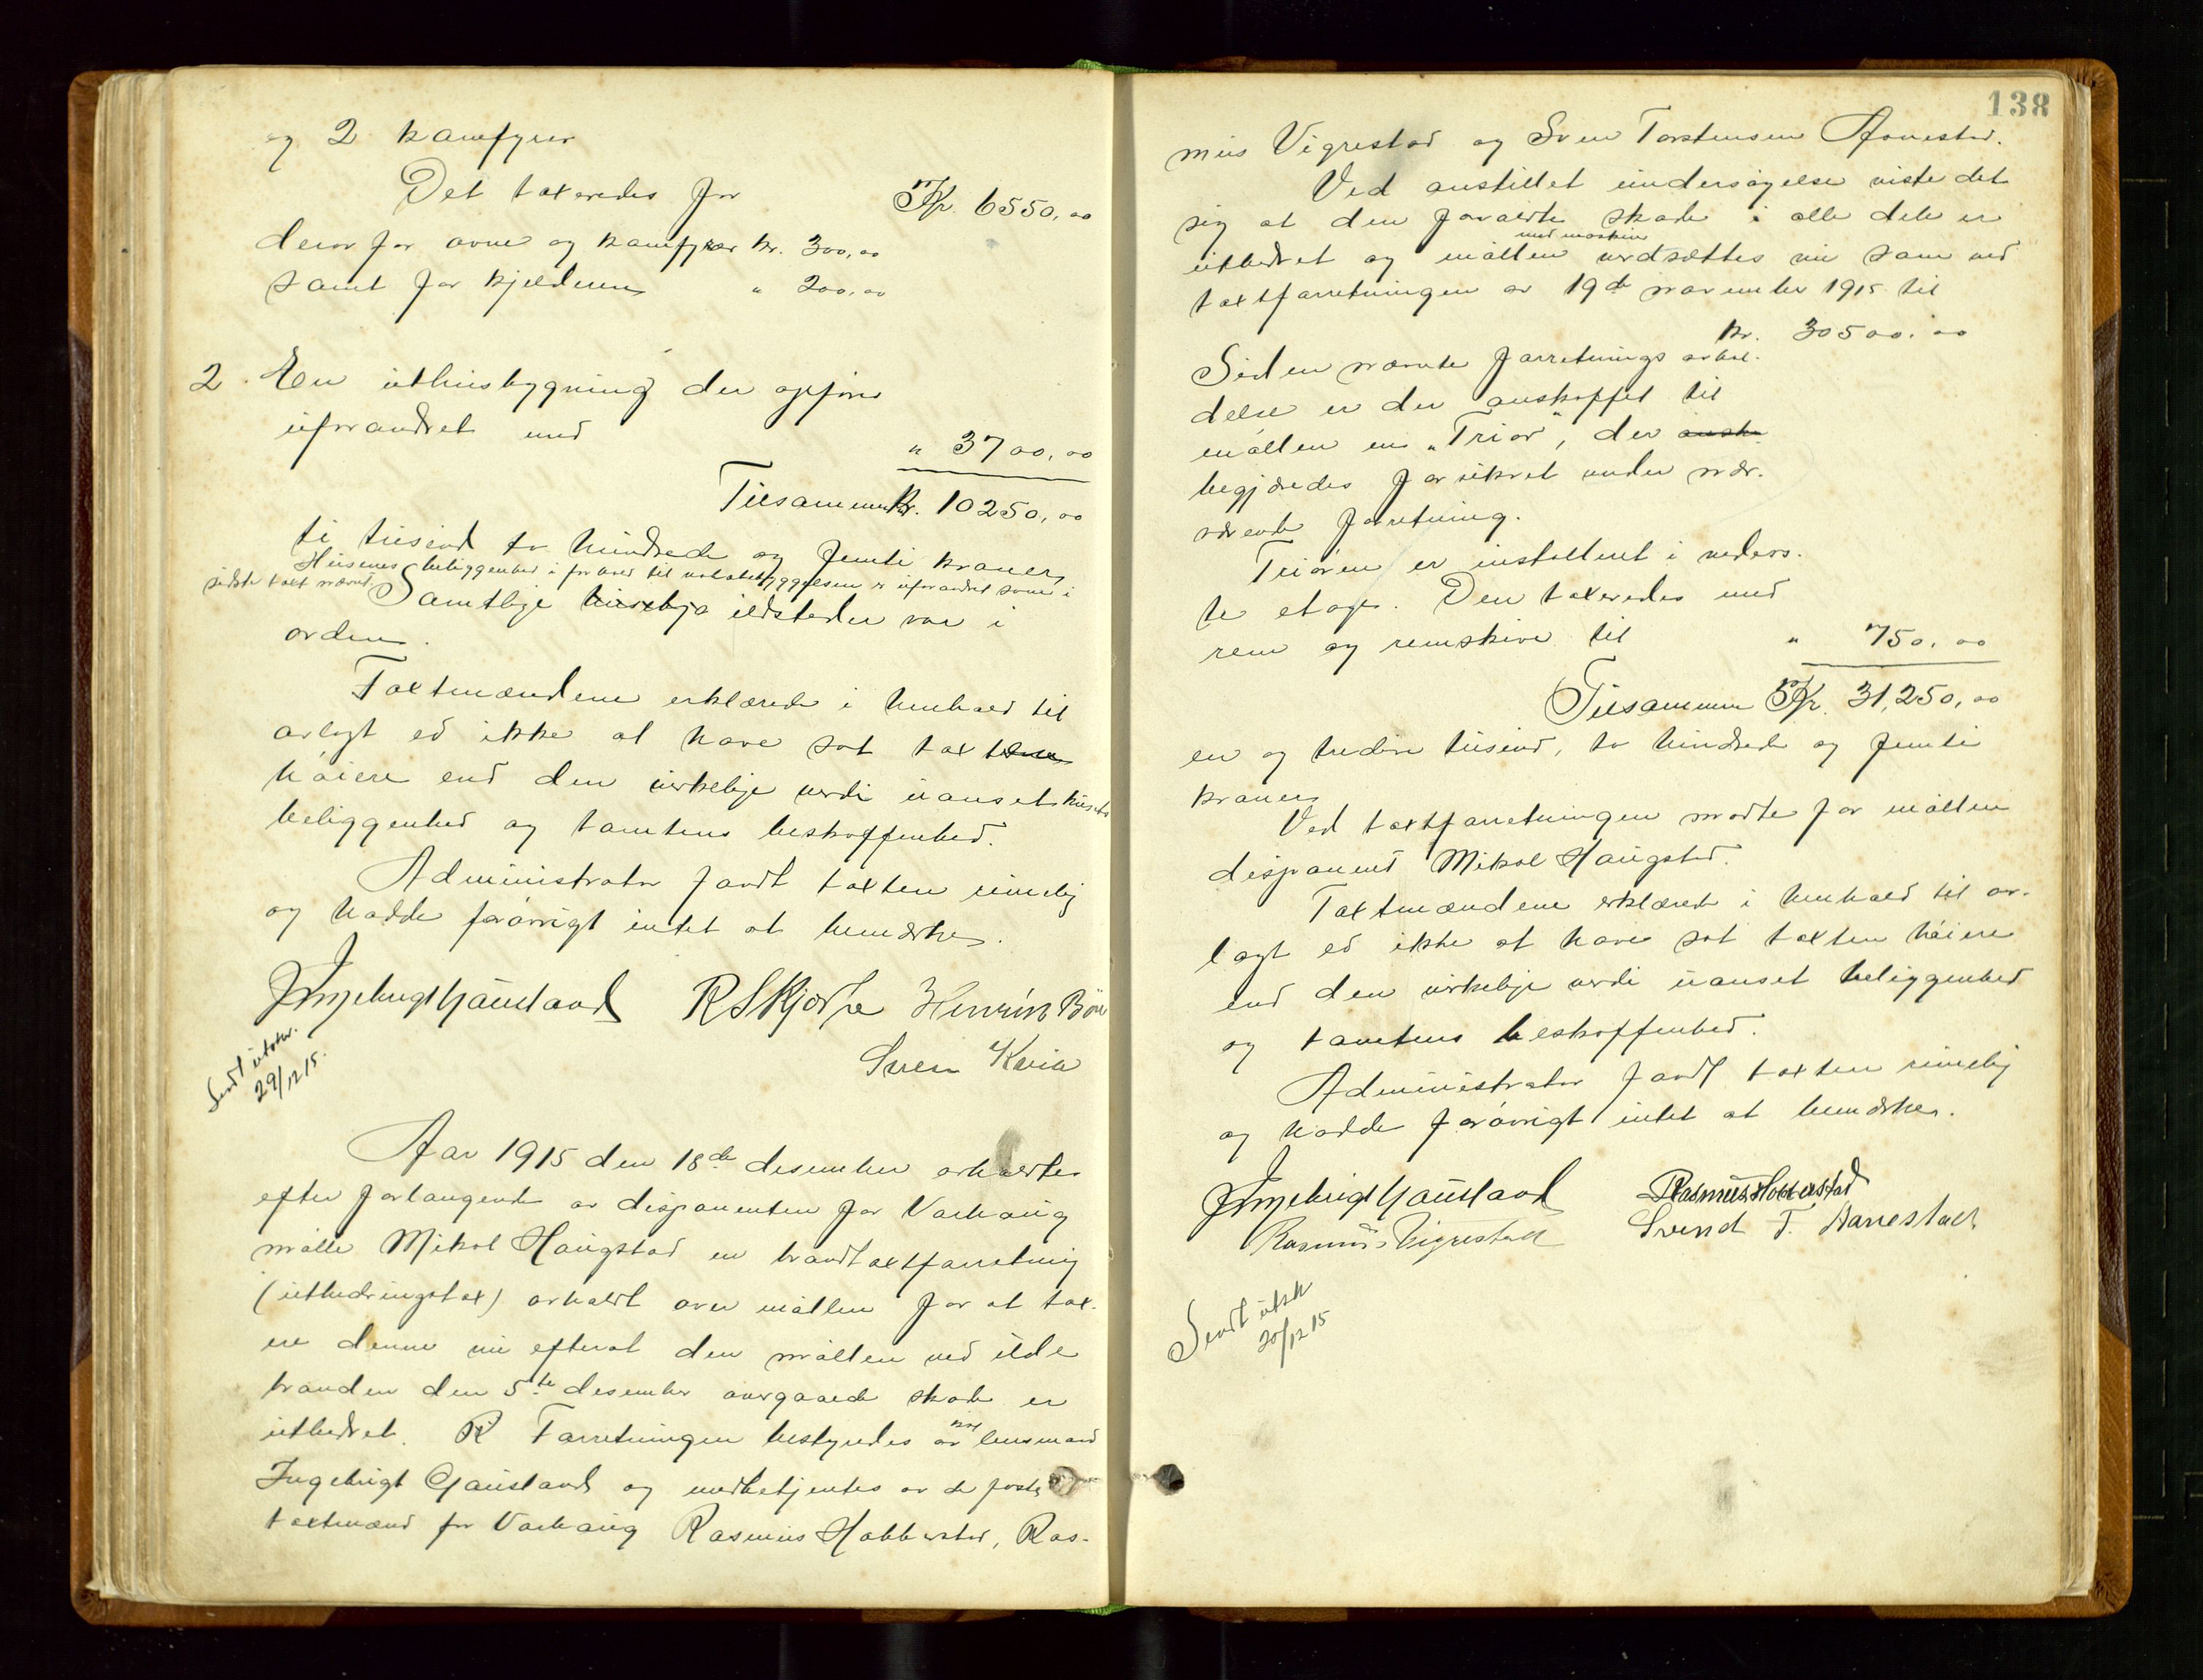 og 2 kamfyrer
Det taxeredes for Kr. 6550,00
derav for ovne og kamfyrer kr. 300,00
samt for kjelderen " 200,00
2. En uthusbygning der opføres
uforandret med
" 3700,00
Tilsammen Kr. 10250,00
ti tusind to hundrede og femti kroner
Husenes beliggenhed i forhold til nabobebyggelsen er uforandret som i
sidste taxt nævnt. Samtlige ildsteder var i
orden.
Taxtmændene erklærede i henhold til
avlagt ed ikke at have sat taxten
høiere end den virkelige verdi uanset husets
beliggenhed og tomtens beskaffenhed.
Administrator fandt taxten rimelig
og hadde forøvrigt intet at bemærke.
Ingebrigt Gausland R S Kjosse Henrik Böe
Sven Kvia
Sendt utskr.
29/12 15.
Aar 1915 den 18de desember avholdtes
efter forlangende av disponenten for Varhaug
mølle Mikal Haugstad en brandtaxtforretning
(utbedringstax) avholdt over møllen for at tax-
ere denne nu efterat den møllen ved ilde-
branden den 5te desember overgaaede skade er
utbedret. Forretningen bestyredes av lensmand
Ingebrigt Gausland og medbetjentes av de faste
taxtmænd for Varhaug Rasmus Hobberstad, Ras-
138
mus Vigrestad og Sven Torstensen Aarrestad.
Ved anstillet undersøgelse viste det
sig at den forvoldte skade i alle dele er
med maskiner
utbedret og møllen verdsættes nu som ved
taxtforretningen av 19de november 1915 til
kr. 30500,00
Siden nævnte forretnings avhol-
delse er der anskaffet til
møllen en "Triør", der
begjæredes forsikret under nær-
værende forretning.
Triøren er installeret i neders-
te etage. Den taxeredes med
rem og remskive til " 750,00
Tilsammen Kr. 31,250,00
en og tredive tusind, to hundrede og femti
kroner
Ved taxtforretningen mødte for møllen
disponent Mikal Haugstad.
Taxtmændene erklærede i henhold til av-
lagt ed ikke at have sat taxten høiere
end den virkelige verdi uanset beliggenhed
og tomtens beskaffenhed.
Administrator fandt taxten rimelig
og hadde forøvrigt intet at bemærke.
Ingebrigt Gausland Rasmus Hobberstad
Rasmus Vigrestad Svend T. Aarrestad
Sendt utsk
20/12 15